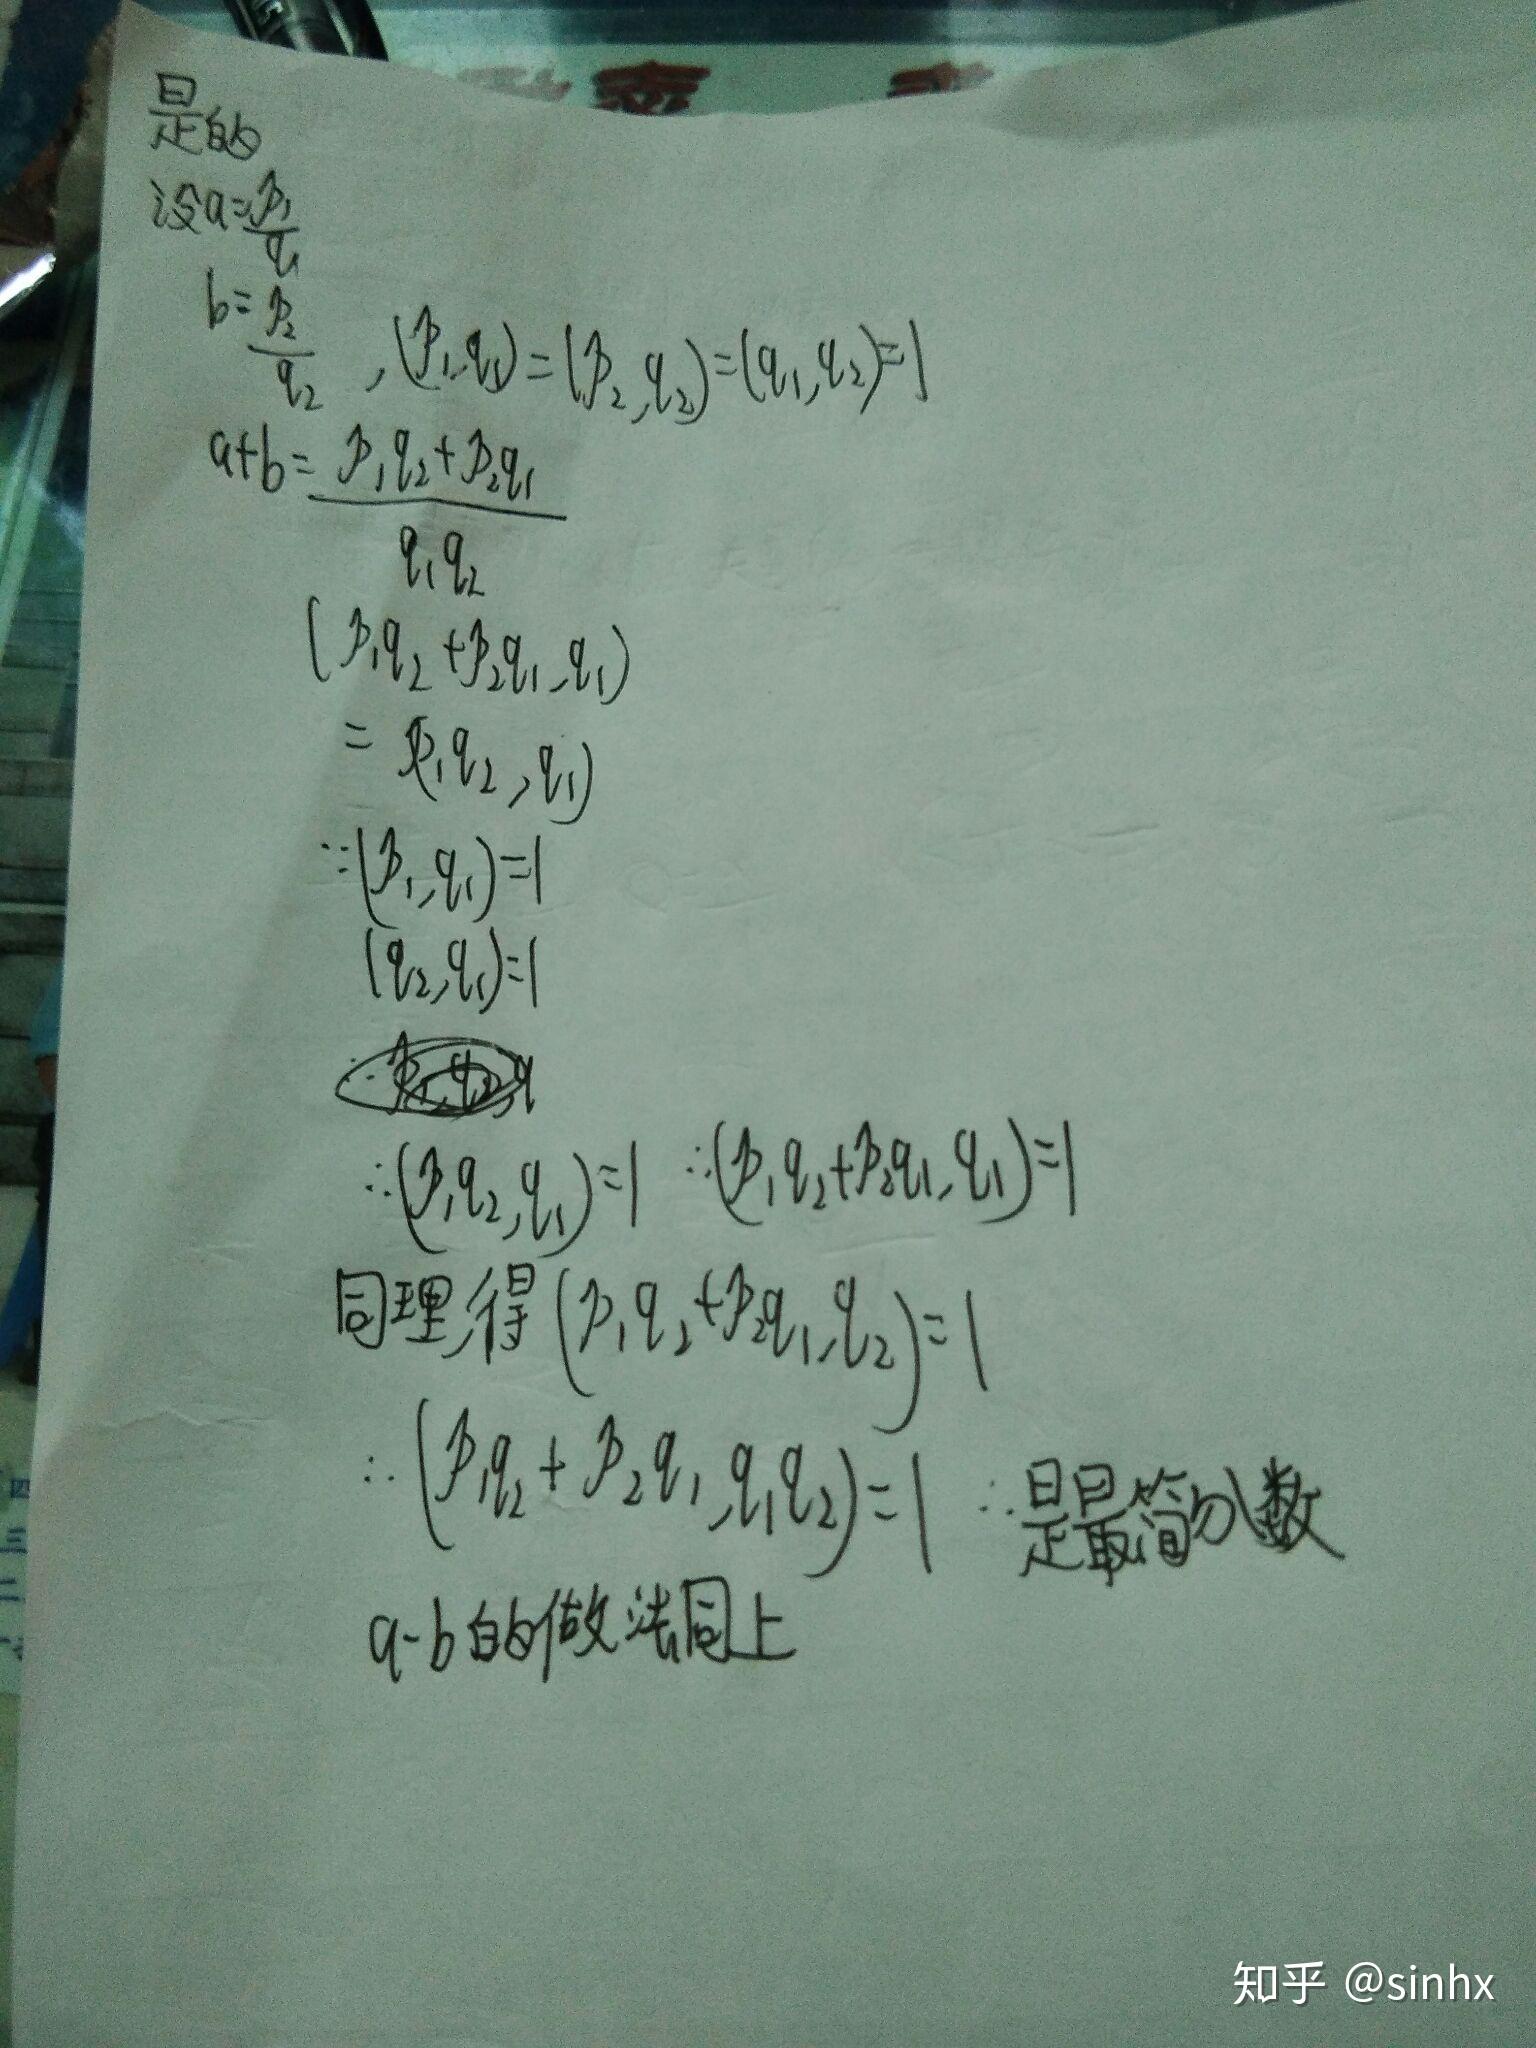 是的
设a=p₁/q₁
b=p₂/q₂,(p₁,q₁)=(p₂,q₂)=(q₁,q₂)=1
a+b=(p₁q₂+p₂q₁)/(q₁q₂)
(p₁q₂+p₂q₁,q₁)
=(p₁q₂,q₁)
∵(p₁,q₁)=1
(q₂,q₁)=1
∴(p₁q₂,q₁)=1 ∴(p₁q₂+p₂q₁,q₁)=1
同理,得(p₁q₂+p₂q₁,q₂)=1
∴(p₁q₂+p₂q₁,q₁q₂)=1 ∴是最简分数
a-b的做法同上
知乎 @sinhx